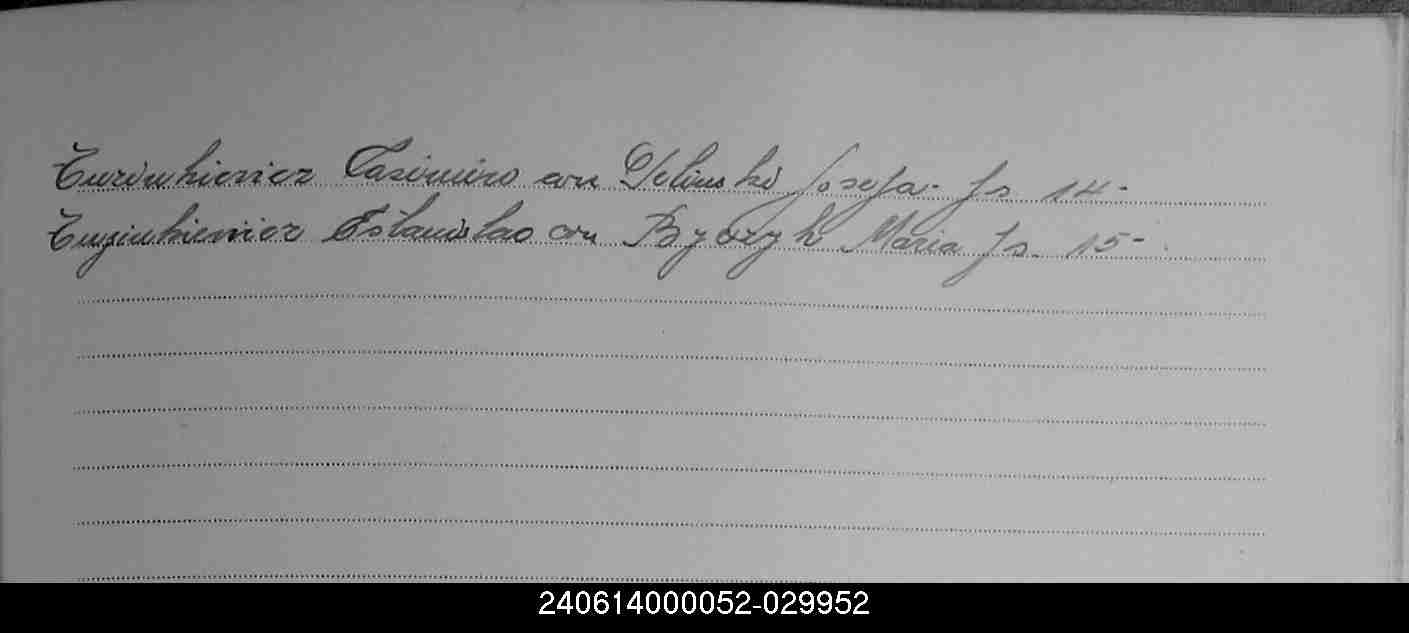 Curinkievicz Casimiro con Zelinski Josefa. fs 14-
Cuyinkieniicz Estanislao con Byczyk Maria fs. 15-
240614000052-029952